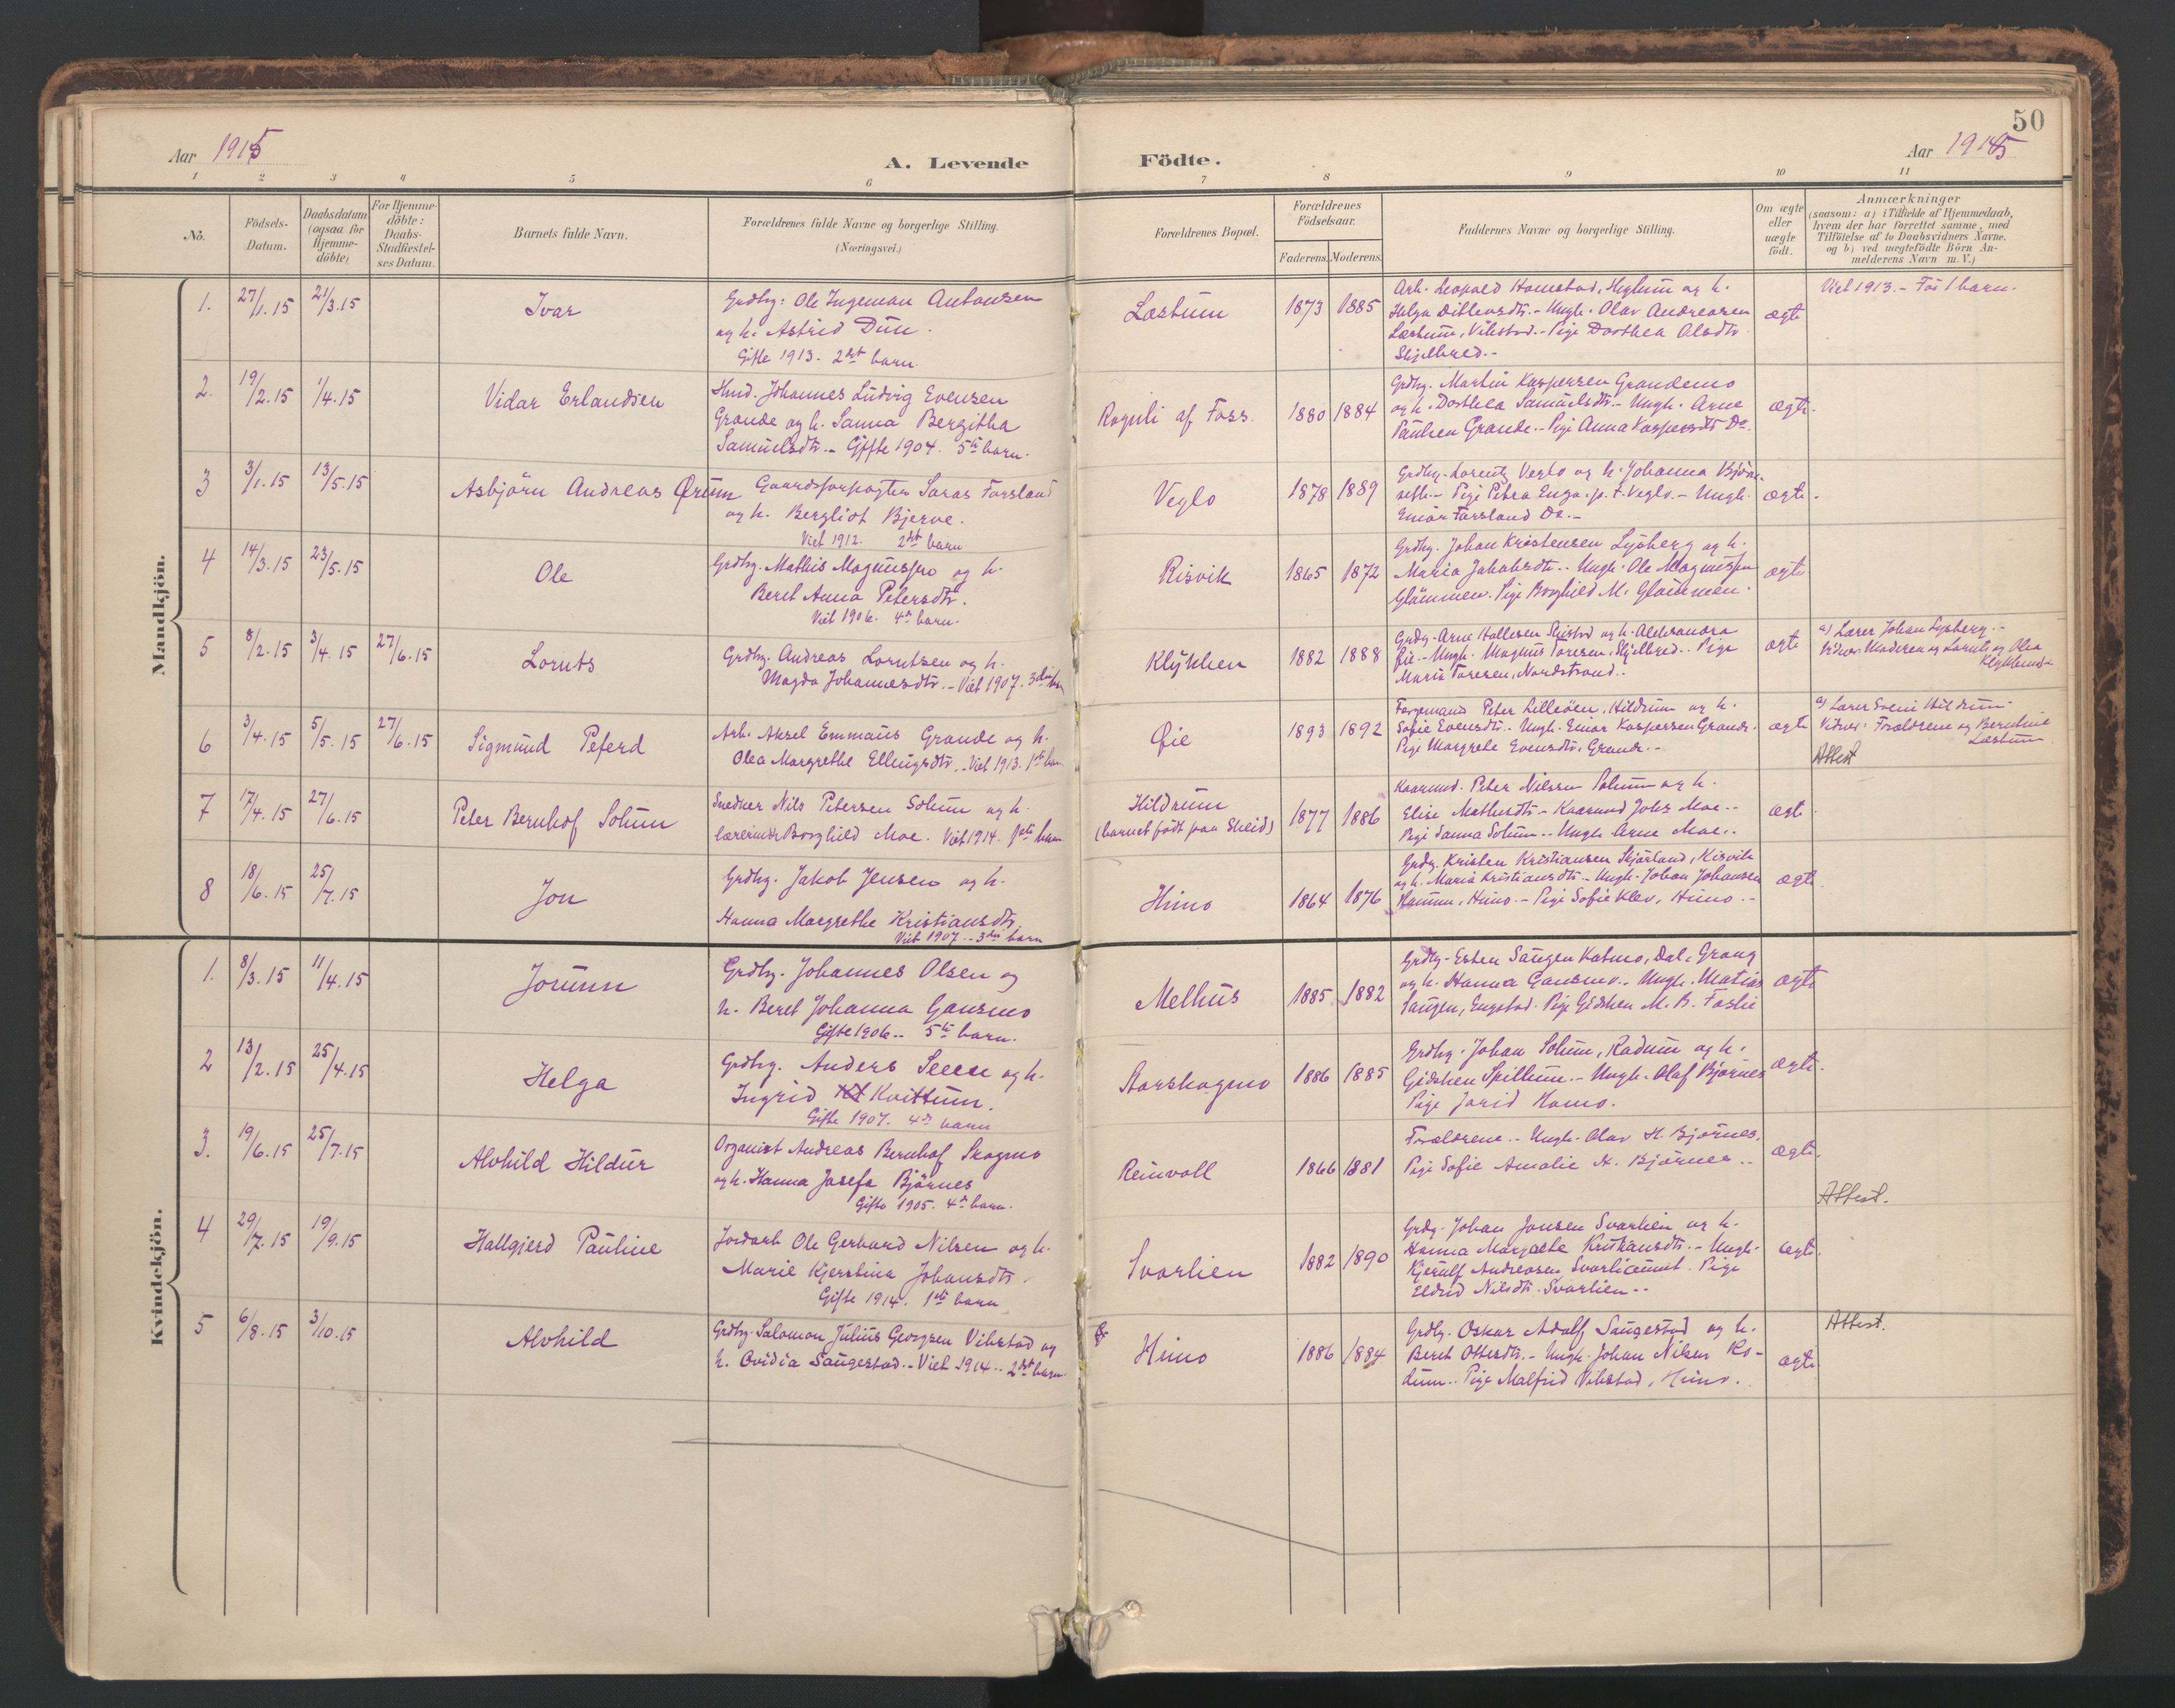 50
Aar 1915
A. Levende
Födte.
Aar 1915
1 2 3 4 5 6 7 8 9 10 11
No.
Födsels-
Datum.
Daabsdatum
(ogsaa for
Hjemme-
döbte)
For Hjemme-
döbte:
Daabs-
Stadfæstel-
ses Datum.
Barnets fulde Navn.
Forældrenes fulde Navne og borgerlige Stilling.
(Næringsvei.)
Forældrenes Bopæl.
Forældrenes
Födselsaar.
Faderens. Moderens.
Faddernes Navne og borgerlige Stilling.
Om ægte
eller
uægte
födt.
Anmærkninger
(saasom: a) i Tilfælde af Hjemmedaab,
hvem der har forrettet samme, med
Tilföielse af to Daabsvidners Navne.
og b) ved uægtefödte Börn An-
melderens Navn m. V.)
Mandkjön.
1. 27/1.15 21/3.15 Ivar
Grdbr. Ole Ingeman Antonsen
og h. Astrid Dün.
Gifte 1913. 2det barn.
Læstum 1873 1885
Arb. Leopold Homstad, Heglum og h.
Helga Dillevsdtr. - Ungk. Olav Andreasen
Læstum, Vibstad. - Pige Dorthea Olsdtr
Skjelbred. -
ægte
Viet 1913. - Før 1 barn.
2. 19/2.15 1/4.15 Vidar Erlandsen
Hmd. Johannes Ludvig Evensen
Grande og h. Sanna Bergitha
Samuelsdtr. - Gifte 1904. 5te barn.
Rognli af Foss. 1880 1884
Grdbr. Martin Kaspersen Grandemo
og h. Dorthea Samuelsdtr. - Ungk. Arne
Paulsen Grande. - Pige Anna Kaspersdtr Do.
ægte.
3 3/1.15 13/5.15 Asbjörn Andreas Ørum
Gaardsforpagter Saras Forsland
og h. Bergliot Bjerve.
Viet 1912. 2det barn
Veglo 1878 1889
Grdbr. Lorentz Veglo og h. Johanna Bjørn-
seth. - Pige Petra Enga. p. t. Veglo. - Ungk.
Einar Forsland Do. -
ægte.
4 14/3.15 23/5.15 Ole
Grdbr. Mathis Magnussen og h.
Beret Anna Petersdtr.
Viet 1906. 4de barn.
Risvik 1865 1872
Grdbr. Johan Kristensen Lysberg og h.
Maria Jakobsdtr. - Ungk. Ole Magnussen
Glømmen. Pige Borghild M. Glømmen.
ægte
5 8/2.15 3/4.15 27/6.15 Loruts
Grdbr. Andreas Lorntsen og h.
Magda Johannesdtr. - Viet 1907. 3die barn
Klykken 1882 1888
Grdbr. Arne Hallesen Skistad og h. Aleksandra
Øie. - Ungk. Magnus Toresen, Skjelbred. - Pige
Maria Toresen, Nordstrand. -
ægte
a) Lærer Johan Lysberg. -
Vidner Moderen og Lornts og Olea
Klykken
6 3/4.15 5/5.15 27/6.15 Sigmund Peferd
Arb. Aksel Emmaus Grande og h.
Olea Margrethe Ellingsdtr. - Viet 1913. 1ste barn.
Øie 1893 1892
Færgemand Peter Lilleøen, Hildrum og h.
Sofie Evensdtr. - Ungk. Einar Kaspersen Grande.
Pige Margrete Evensdtr. Grande. -
ægte
a) Lærer Svein Hildrum.
Vidner: Forældrene og Berntine
Læstum
Attest
7 17/4.15 27/6.15 Peter Bernhof Solum
Snedker Nils Petersen Solum og h.
lærerinde Borghild Moe. Viet 1914. 1ste barn
Hildrum
(barnet født paa Skeid) 1877 1886
Kaarmd. Peter Nilssen Solum og h.
Elise Mathisdtr. - Kaarmd Johs Moe. -
Pige Sanna Solum. - Ungk. Arne Moe. -
ægte
8 18/6.15 25/7.15 Jon
Grdbr. Jakob Jensen og h.
Hanna Margrethe Kristiansdtr.
Viet 1907. - 3die barn
Himo 1864 1876
Grdbr. Kristen Kristiansen Skjørland, Risvik
og h. Maria Kristiansdtr. - Ungk. Johan Johansen
Hamnn, Himo. - Pige Sofie Klev, Himo. -
ægte.
Kvindekjön.
1. 8/3.15 11/4.15 Jorunn
Grdbr. Johannes Olsen og
h. Beret Johanna Gansmo
Gifte 1906. - 5te barn.
Melhus 1885 1882
Grdbr. Esten Saugen Katmo, Dal. Grong
og h. Hanna Gansmo. - Ungk. Matias
Saugen, Engstad. Pige Gidsken M. B. Foslie
ægte
2 13/2.15 25/4.15 Helga
Grdbr. Anders Seem og h.
Ingrid Kvittum.
Gifte 1907. 4de barn
Barskogmo 1886 1885
Grdbr. Johan Solum, Rødum og h.
Gidsken Spillum. - Ungk. Olaf Bjørnes
Pige Jorid Homo.
ægte.
3. 19/6.15 25/7.15 Alvhild Hildur
Organist Andreas Bernhof Skogmo
og h. Hanna Josefa Bjørnes
Gifte 1905. 4de barn.
Reinvoll 1866 1881
Forældrene. - Ungk. Olav H. Bjørnes.
Pige Sofie Amalie H. Bjørnes. -
ægte.
Attest.
4 29/7.15 19/9.15 Hallgjerd Pauline
Jordarb Ole Gerhard Nilsen og h.
Marie Kjerstina Johansdtr.
Gifte 1914. 1ste barn
Svarlien 1882 1890
Grdbr. Johan Jonsen Svarlien og h.
Hanna Margrete Kristiansdtr. - Ungk.
Kjerulf Andreasen Svarliemet. Pige
Eldrid Nilsdtr. Svarlien. -
ægte.
5 6/8.15 3/10.15 Alvhild
Grdbr. Salomon Julius Georgsen Vibstad og
h. Ovidia Saugestad. - Viet 1914. - 2det barn.
Himo 1886 1884
Grdbr. Oskar Adolf Saugestad og h.
Beret Ottersdtr. - Ungk. Johan Nilsen Rø-
dum. - Pige Malfrid Vibstad, Himo.
ægte.
Attest.